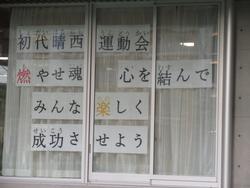 初代晴西 運動会
燃やせ魂 心を結んで
みんな 楽しく
成功させよう